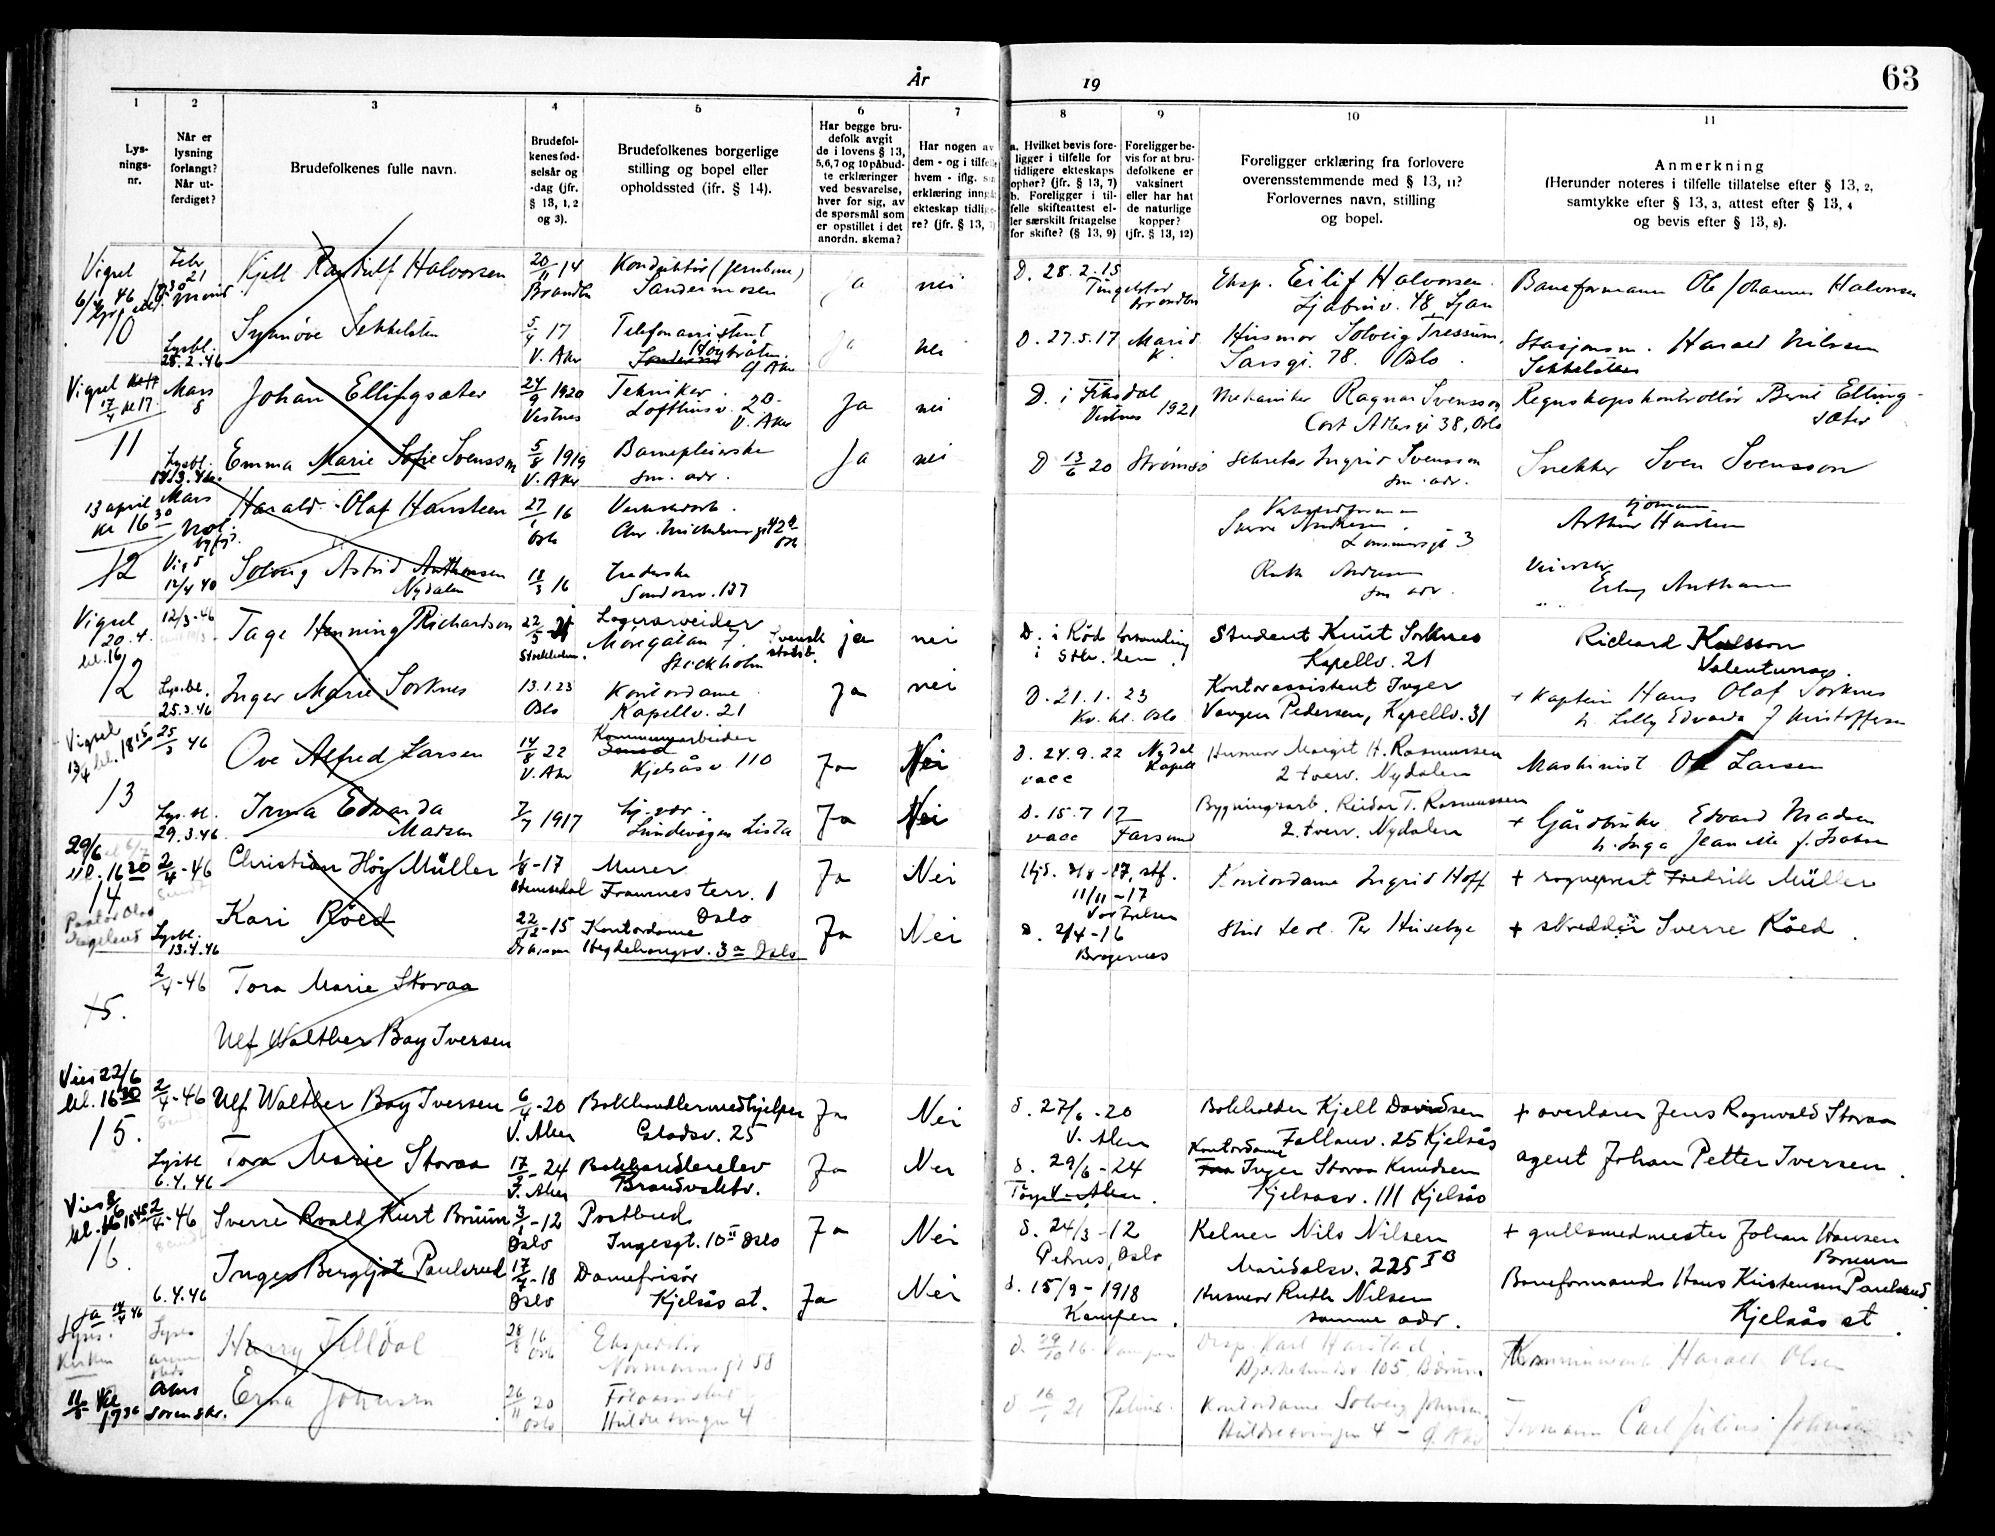 År 19
63
1
2
3
4
5
6
7
8
9
10
11
Lys-
nings-
nr.
Når er
lysning
forlangt?
Når ut-
ferdiget?
Brudefolkenes fulle navn.
Brudefol-
kenes fød-
selsår og
-dag (jfr.
§ 13, 1, 2
og 3).
Brudefolkenes borgerlige
stilling og bopel eller
opholdssted (jfr. § 14).
Har begge bru-
defolk avgit
de i lovens § 13,
5,6,7 og 10 påbud-
te erklæringer
ved besvarelse,
hver for sig, av
de spørsmål som
er opstillet i det
anordn. skema?
Har nogen av
dem - og i tilfelle
hvem - iflg.
erklæring
ekteskap
re? (jfr. § 13,
a. Hvilket bevis fore-
ligger i tilfelle for
tidligere ekteskaps
ophør? (jfr. § 13, 7)
b. Foreligger i til-
felle skifteattest el-
ler særskilt fritagelse
for skifte? (§ 13, 9)
Foreligger be-
vis for at bru-
defolkene er
vaksinert
eller har hat
de naturlige
kopper?
(jfr. § 13, 12)
Foreligger erklæring fra forlovere
overensstemmende med § 13, 11?
Forlovernes navn, stilling
og bopel.
Anmerkning
(Herunder noteres i tilfelle tillatelse efter § 13, 2,
samtykke efter § 13, 3, attest efter § 13, 4
og bevis efter § 13, 8).
Vigsel
10
Febr
21
Kjell Randulf Halvorsen
20/11 14
Brandbu
Konduktør (jernbane)
Sandermosen
ja
nei
D. 28.2.15
Tingelstad
Brandbu
Eksp. Eilif Halvorsen.
Ljabruv. 48, Ljan
Baneformann Ole Johannes Halvorsen
Lysbl.
28.2.46
Synnøve Sekkelsten
5/4 17
V. Aker
Telefonassistent
ja
nei
D. 27.5.17
Marid
K.
Husmor Solveig Tressum,
Sarsgt. 78. Oslo.
Stasjonsm. Harald Nilsen
Sekkelsten
Vigsel
17/4 kl 17
11
Mars
8
Johan Ellingsæter
24/9 1920
Vestnes
Tekniker.
Lofthusv. 20.
V. Aker
Ja
nei
D. i Fiksdal
Vestnes 1921
Mekaniker Ragnar Svensson
Cort Adlersgt 38, Oslo
Regnskapskontrollør Bernt Elling-
sæter
Lysbl.
Emma Marie Sofie Svensson
5/8 1919
V. Aker
Barnepleierske
sm. adr.
Ja
nei
D 13/6 20
Strømsø
Sekretær Ingrid Svensson
sm. adr.
Snekker Sven Svensson
13 april
kl 16 30
12
Mars
Harald Olaf Hansteen
27/1 16
Oslo
Verksarb.
Sverre Andresen
3
Sjømann
Arthur Hansteen
Vig 5
12/4 40
Solveig Astrid Anthonsen
Nydalen
18/3 16
Sandosv. 137
Ruth Andresen
sm adr.
Vigsel
20.4.
kl. 16
12
12/3-46
Tage Henning Richardson
22/5
Stockholm.
Lagerarbeider
7.
Stockholm
Svensk
statsb.
ja
nei
D. i Röda forsamling
i Sth. lem.
Student Knut Sorknes
Kapellv. 21
Richard Karlsson
Lysbl.
25.3.46
Inger Marie Sorknes
13.1.23
Oslo
Kontordame
Kapellv. 21
Ja
nei
D. 21.1.23
Kv. kl. Oslo
Kontorassistent Inger
Vangen Pedersen, Kapellv. 31
+ Kaptein Hans Olaf Sorknes
h. Lilly Edvarda f Kristoffersen
Vigsel
13/4 kl. 18 15
13
25/3 46
Ove Alfred Larsen
14/8 22
V. Aker
Kommunearbeider
Kjelsåsv 110
Ja
Nei
D. 24.9.22
vacc
Nydal
Kapell
Husmor Margit H. Rasmussen
2 tverv. Nydalen
Maskinist Ole Larsen
Lys. bl.
29.3.46
Irma Edvarda
Madsen
7/7 1917
Hj. vær.
Lindevågen Lista
Ja
Nei
D. 15.7 17
vacc Farsund
Bygningsarb. Reidar T. Rasmussen
2. tverv. Nydalen
+ Gårdbruker Edvard Madsen
29/6
kl. 16 30
14
2/4-46
Christian Høy Müller
1/8-17
Hemsedal
Murer
Frauenes terr. 1
Oslo
Ja
Nei
Hjd. 3/8-17, stf.
11/11-17
Vor Frelser
Kontordame Ingrid Hoff
+ sogneprest Fredrik Müller
Pastor Olav
Lysbl.
13.4.46
Kari Røed
22/12-15
Drammen
Kontordame
Hegdehaugsv. 3a Oslo
Ja
Nei
D. 2/4-16
Bragernes
Stud. teol. Per Huseby
+ skredder Sverre Røed.
15.
2/4-46
Tora Marie Storaa
Ulf Walther Bay Iversen
Vies 22/6
kl. 16 30
15.
2/4-46
Ulf Walther Bay Iversen
6/4-20
V. Aker
Bokhandlermedhjelper
Gladsv. 25
Ja
Nei
d. 27/6-20
V. Aker
Bokholder Kjell Davidsen
Fallanv. 25 Kjelsås
+ overlærer Jens Rognvald Storaa
Lysbl
6.4.46
Tora Marie Storaa
17/3-24
V. Aker
Bokhandlerelev
Brandvaktv.
Ja
Nei
d. 29/6-24
V. Aker.
Kontordame
Inger Storaa Knudsen
Kjelsåsv. 111 Kjelsås
agent Johan Petter Iversen.
Vies 8/6
kl. 18 45
16.
2/4-46
Sverre Roald Kurt Bruun
3/1-12
Oslo
Postbud
Ingesgt. 10 II Oslo
Ja
Nei
d. 24/3-12
Petrus, Oslo
Kelner Nils Nilsen
Maridalsv. 225 I B
+ gullsmedmester Johan Hansen
Bruun
6.4.46
Inger Bergljot Paulsrud
17/7-18
Oslo
Damefrisør
Kjelsås st.
Ja
Nei
d. 15/9-1918
Kampen.
Husmor Ruth Nilsen
samme adr.
Baneformand Hans Kristensen Paulsrud.
Kjelsås st.
Ja 14/4 46
Lyses.
Kirken
Harry Filldal
28/8 16
Oslo
Ekspeditør
Normannsgt 58
d. 29/10 16
Disp. Karl Harstad
105 Bærum
Harald Olsen
11/5 kl
17 30
Erna Johnsen
26/11 20
Oslo
Huldresvingen 4
d 16/1 21
Petrus.
Kontordame Solveig Johnsen
Huldresvingen 4 - V. Aker
Formann Carl Julius Johnsen